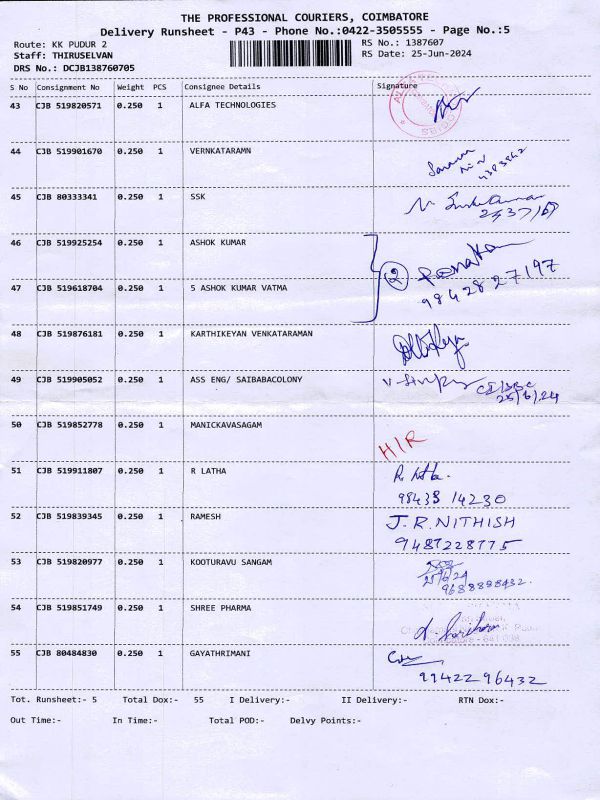 THE PROFESSIONAL COURIERS, COIMBATORE
Delivery Runsheet - P43 - Phone No.:0422-3505555 - Page No.:5
Route: KK PUDUR 2
RS No.: 1387607
Staff: THIRUSELVAN
RS Date: 25-Jun-2024
DRS No.: DCJB138760705
S No Consignment No Weight PCS Consignee Details Signature
43 CJB 519820571 0.250 1 ALFA TECHNOLOGIES
44 CJB 519901670 0.250 1 VERNKATARAMN
45 CJB 80333341 0.250 1 SSK
46 CJB 519925254 0.250 1 ASHOK KUMAR
2
47 CJB 519618704 0.250 1 5 ASHOK KUMAR VATMA
9842827197
48 CJB 519876181 0.250 1 KARTHIKEYAN VENKATARAMAN
49 CJB 519905052 0.250 1 ASS ENG/ SAIBABACOLONY
25/6/24
50 CJB 519852778 0.250 1 MANICKAVASAGAM
H/R
51 CJB 519911807 0.250 1 R LATHA
98438 14230
52 CJB 519839345 0.250 1 RAMESH J.R.NITHISH
9487228775
53 CJB 519820977 0.250 1 KOOTURAVU SANGAM
25/6/24
9688898432.
54 CJB 519851749 0.250 1 SHREE PHARMA
55 CJB 80484830 0.250 1 GAYATHRIMANI
9942296432
Tot. Runsheet:- 5 Total Dox:- 55 I Delivery:- II Delivery:- RTN Dox:-
Out Time:- In Time:- Total POD:- Delvy Points:-